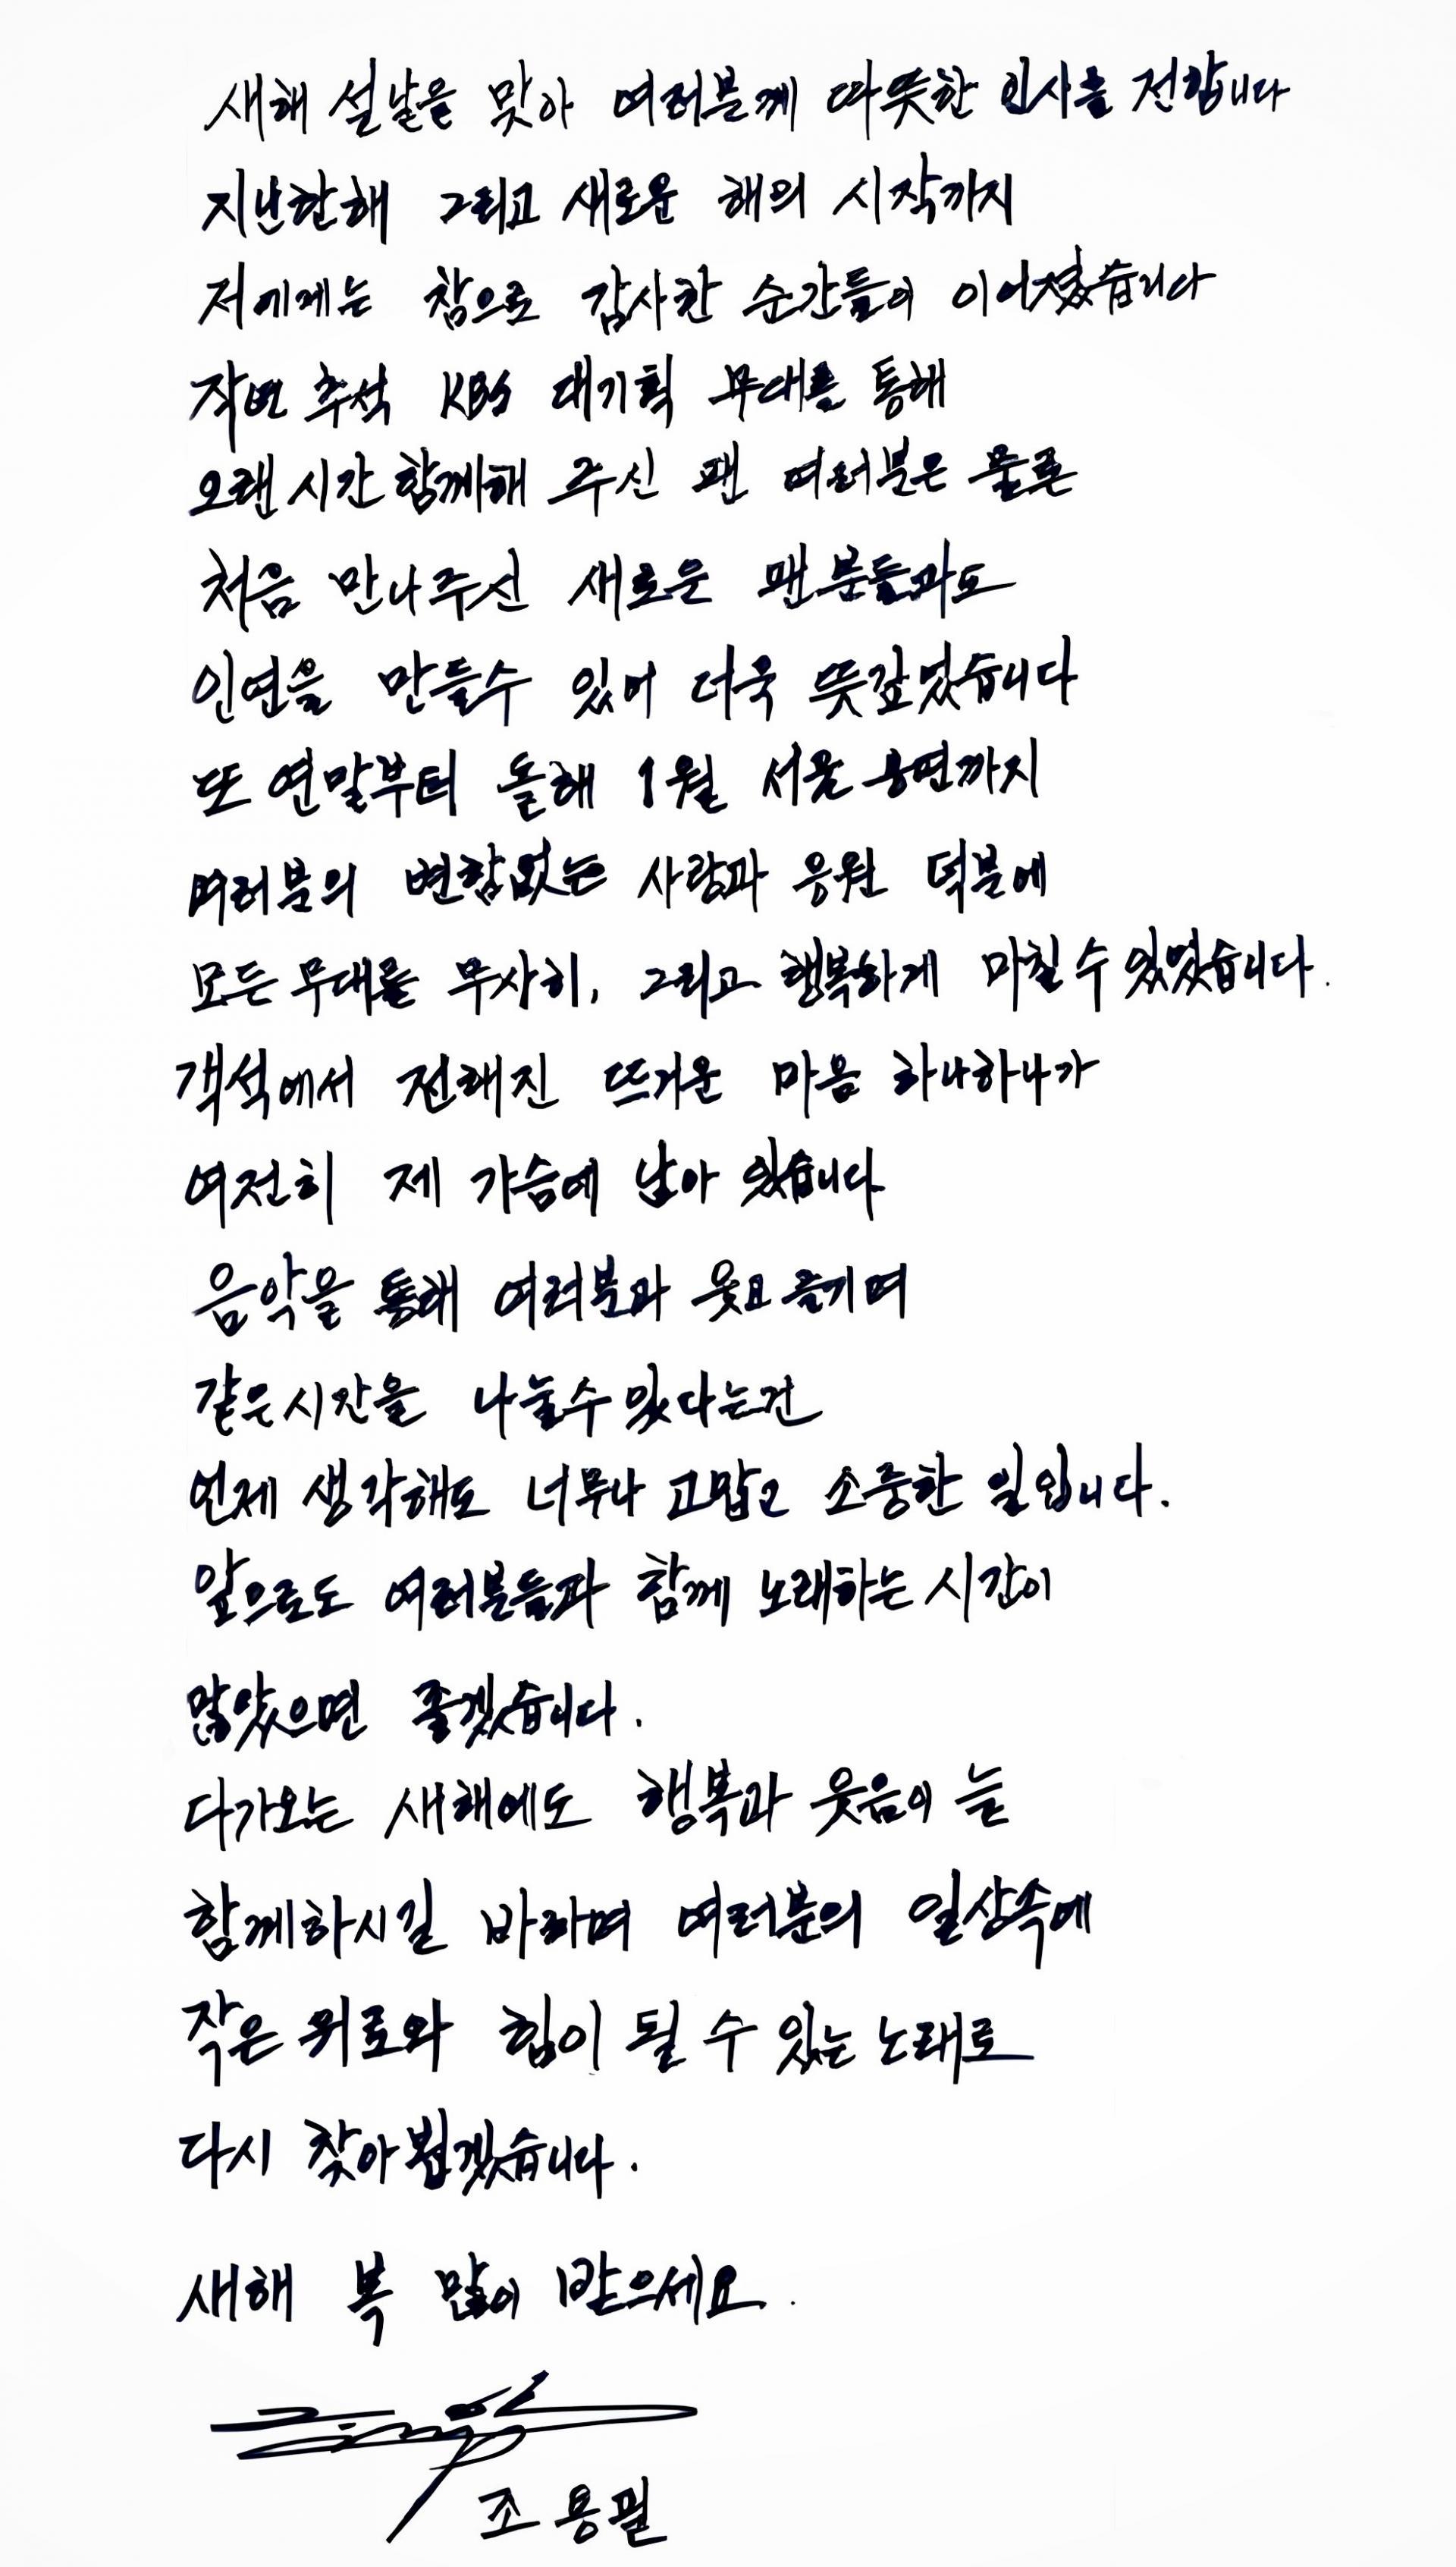 새해 설날을 맞아 여러분께 따뜻한 인사를 전합니다
지난한해 그리고 새로운 해의 시작까지
저에게는 참으로 감사한 순간들이 이어졌습니다
작년 추석 KBS 대기획 무대를 통해
오랜 시간 함께해 주신 팬 여러분은 물론
처음 만나주신 새로운 팬분들과도
인연을 만들수 있어 더욱 뜻깊었습니다
또 연말부터 올해 1월 서울 공연까지
여러분의 변함없는 사랑과 응원 덕분에
모든 무대를 무사히, 그리고 행복하게 마칠 수 있었습니다.
객석에서 전해진 뜨거운 마음 하나하나가
여전히 제 가슴에 남아 있습니다
음악을 통해 여러분과 웃고 즐기며
같은 시간을 나눌수 있다는건
언제 생각해도 너무나 고맙고 소중한 일입니다.
앞으로도 여러분들과 함께 노래하는 시간이
많았으면 좋겠습니다.
다가오는 새해에도 행복과 웃음이 늘
함께하시길 바라며 여러분의 일상속에
작은 위로와 힘이 될 수 있는 노래로
다시 찾아뵙겠습니다.
새해 복 많이 받으세요.
조용필